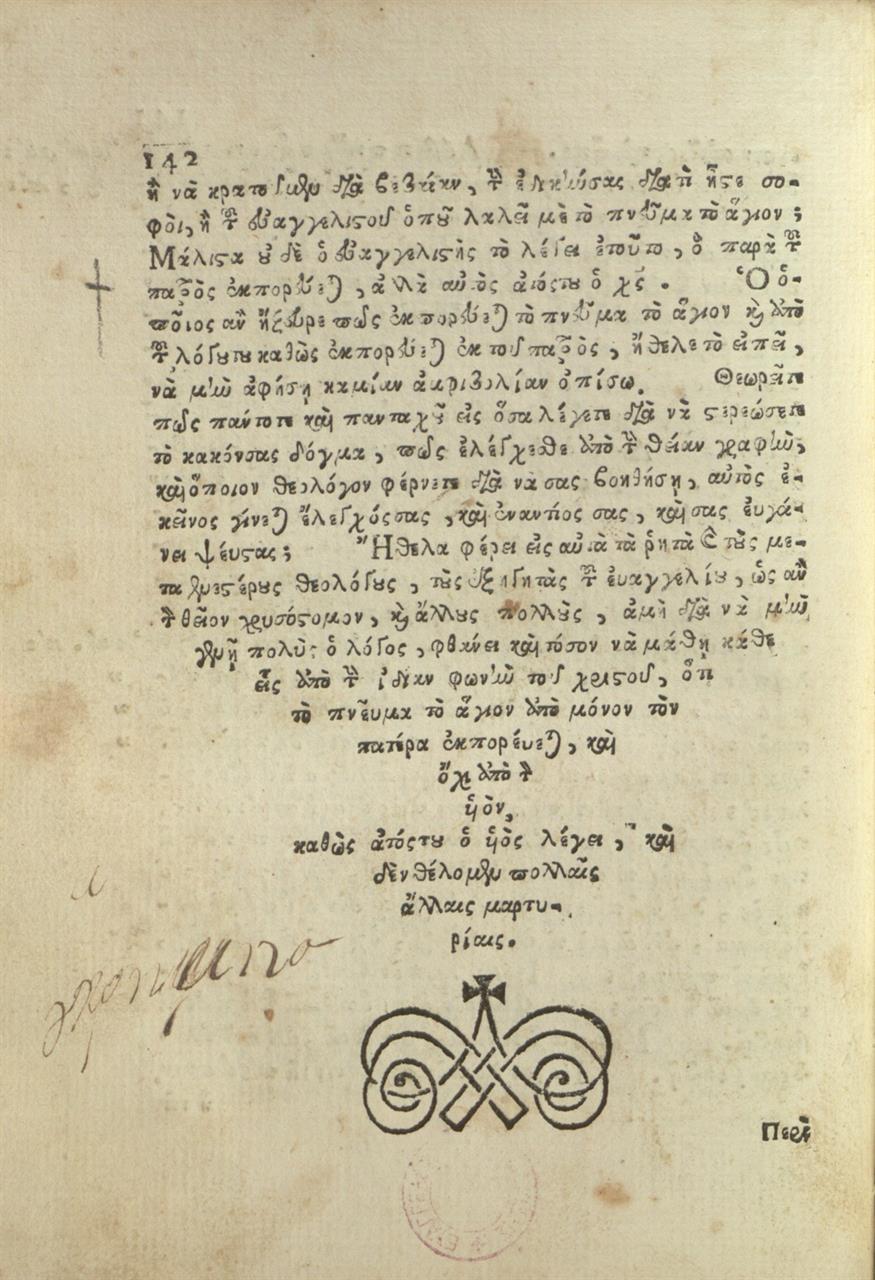 142
ἢ νὰ κρατοῦμεν διὰ βεβαίαν, τὴν ἐδικήνσας διατὶ ἦστε σο-
φοὶ, ἢ τοῦ εὐαγγελιστοῦ ὁποῦ λαλεῖ μὲ τὸ πνεῦμα τὸ ἅγιον;
Μάλιστα οὐδὲ ὁ εὐαγγελιστὴς τὸ λέγει ἐτοῦτο, ὃ παρὰ τοῦ
πατρὸς ἐκπορεύεται, ἀλλὰ αὐτὸς ἀτόςτου ὁ χς. Ὁ ὁ-
ποῖος ἂν ἤξευρε πῶς ἐκπορεύεται τὸ πνεῦμα τὸ ἅγιον καὶ ἀπὸ
τοῦ λόγουτου καθὼς ἐκπορεύεται ἐκ τοῦ πατρὸς, ἤθελε τὸ εἰπεῖ,
νὰ μὴν ἀφήσῃ καμίαν ἀμφιβολίαν ὀπίσω. Θεωρεῖτε
πῶς πάντοτε καὶ πανταχοῦ εἰς ὅσα λέγετε διὰ νὰ στερεώσετε
τὸ κακόνσας δόγμα, πῶς ἐλέγχεσθε ἀπὸ τὴν θείαν γραφὴν;
καὶ ὅποιον θεολόγον φέρνετε διὰ νὰ σας βοηθήσῃ, αὐτὸς ἐ-
κεῖνος γίνεται ἔλεγχόςσας, καὶ ἐναντίος σας, καὶ σας ἐυγά-
νει ψεύστας; Ἤθελα φέρει εἰς αὐτὰ τὰ ῥητὰ καὶ τοὺς με-
ταγενεστέρους θεολόγους, τοὺς ἐξηγητὰς τοῦ ἐυαγγελίου, ὡς ἂν
τὸν θεῖον χρυσόστομον, καὶ ἄλλους πολλοὺς, ἀμὴ διὰ νὰ μὴν
γενῇ πολὺς ὁ λόγος, φθάνει καὶ τόσον νὰ μάθῃ κάθε
εἷς ἀπὸ τὴν ἰδίαν φωνὴν τοῦ χριστοῦ, ὅτι
τὸ πνεῦμα τὸ ἅγιον ἀπὸ μόνον τὸν
πατέρα ἐκπορέυεται, καὶ
ὄχι ἀπὸ τὸν
ὑὸν,
καθὼς ἀτόςτου ὁ ὑὸς λέγει, καὶ
δὲν θέλομεν πολλαῖς
ἄλλαις μαρτυ-
ρίαις.
Περὶ